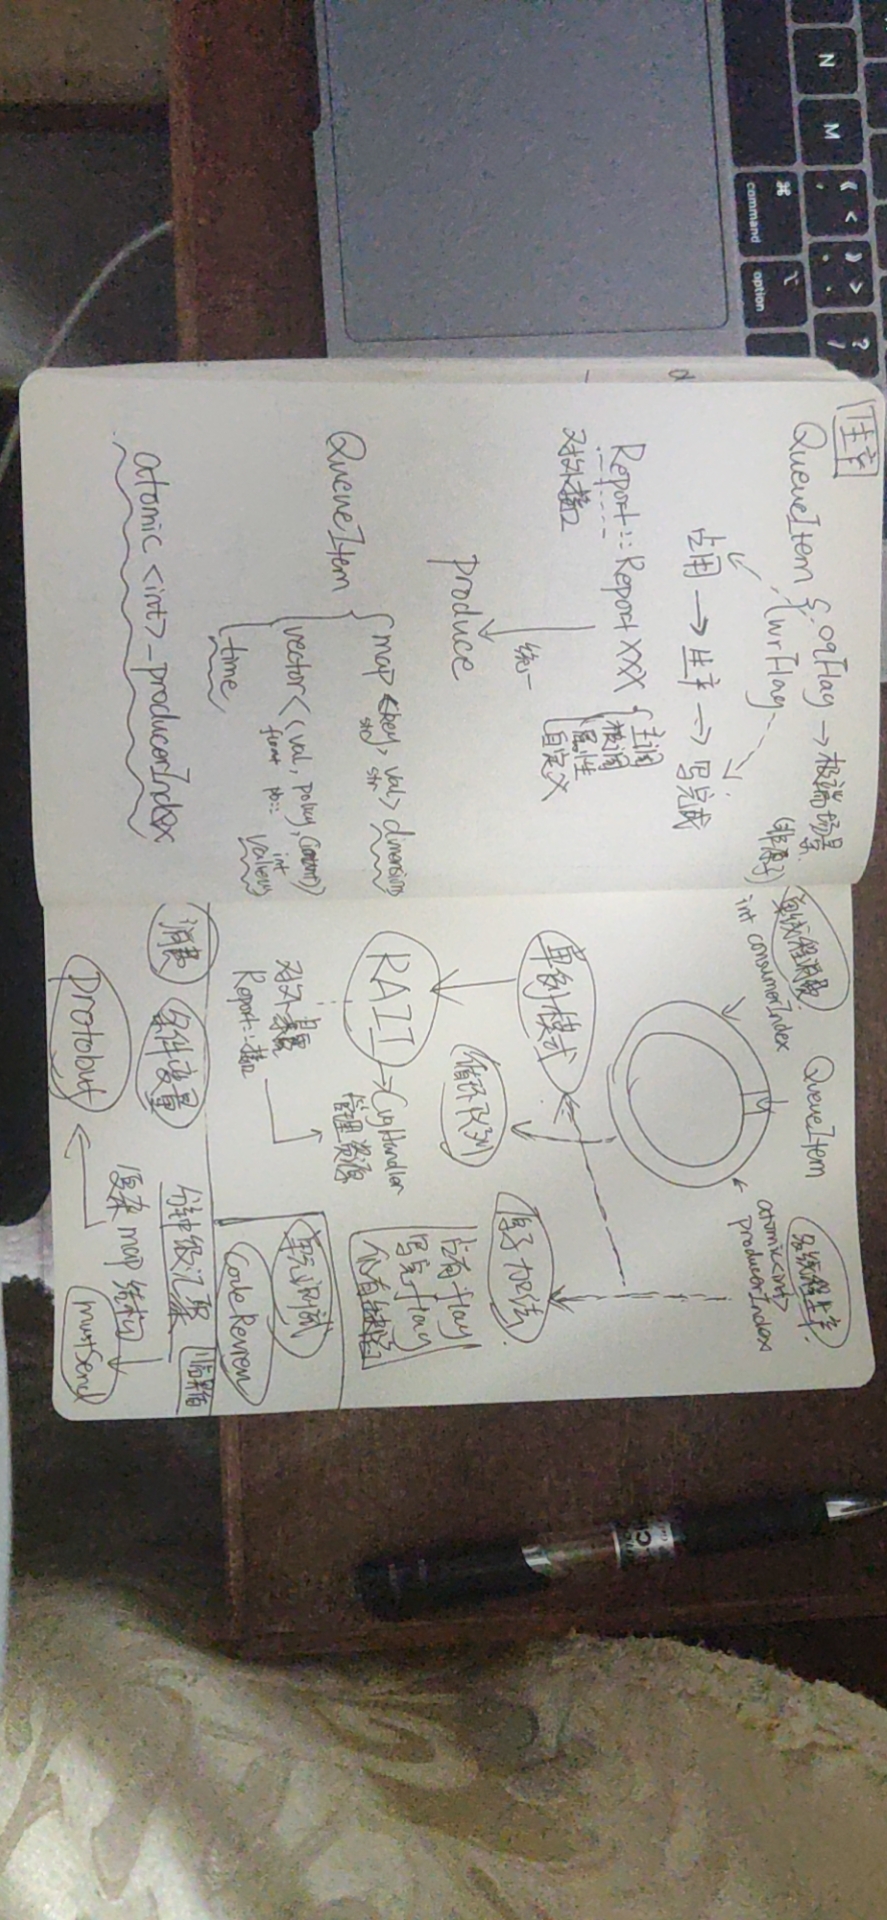 N
M
《 <
》 >
?
/
⌘
command
⌥
option
生产
QueueItem
oqFlag → 极端场景
(非原子)
wrFlag
占用 → 生产 → 写完成
Report::ReportXXX
主调
被调
属性
自定义
对外接口
统一
produce
QueueItem
map <key, val> dimensions
str str
vector<(val, policy,
float pb:: int
time
atomic <int> _producerIndex
单线程消费
int consumerIndex
QueueItem
多线程生产
atomic<int>
producerIndex
单例模式
循环队列
原子加法
占有flag
写完flag
仍有缺陷
RAII → CugHandler
管理资源
对外暴露
Report::接口
单元测试
Code Review
消费
条件变量
分钟级汇聚
临界值
复杂 map 结构
protobuf
mustSend